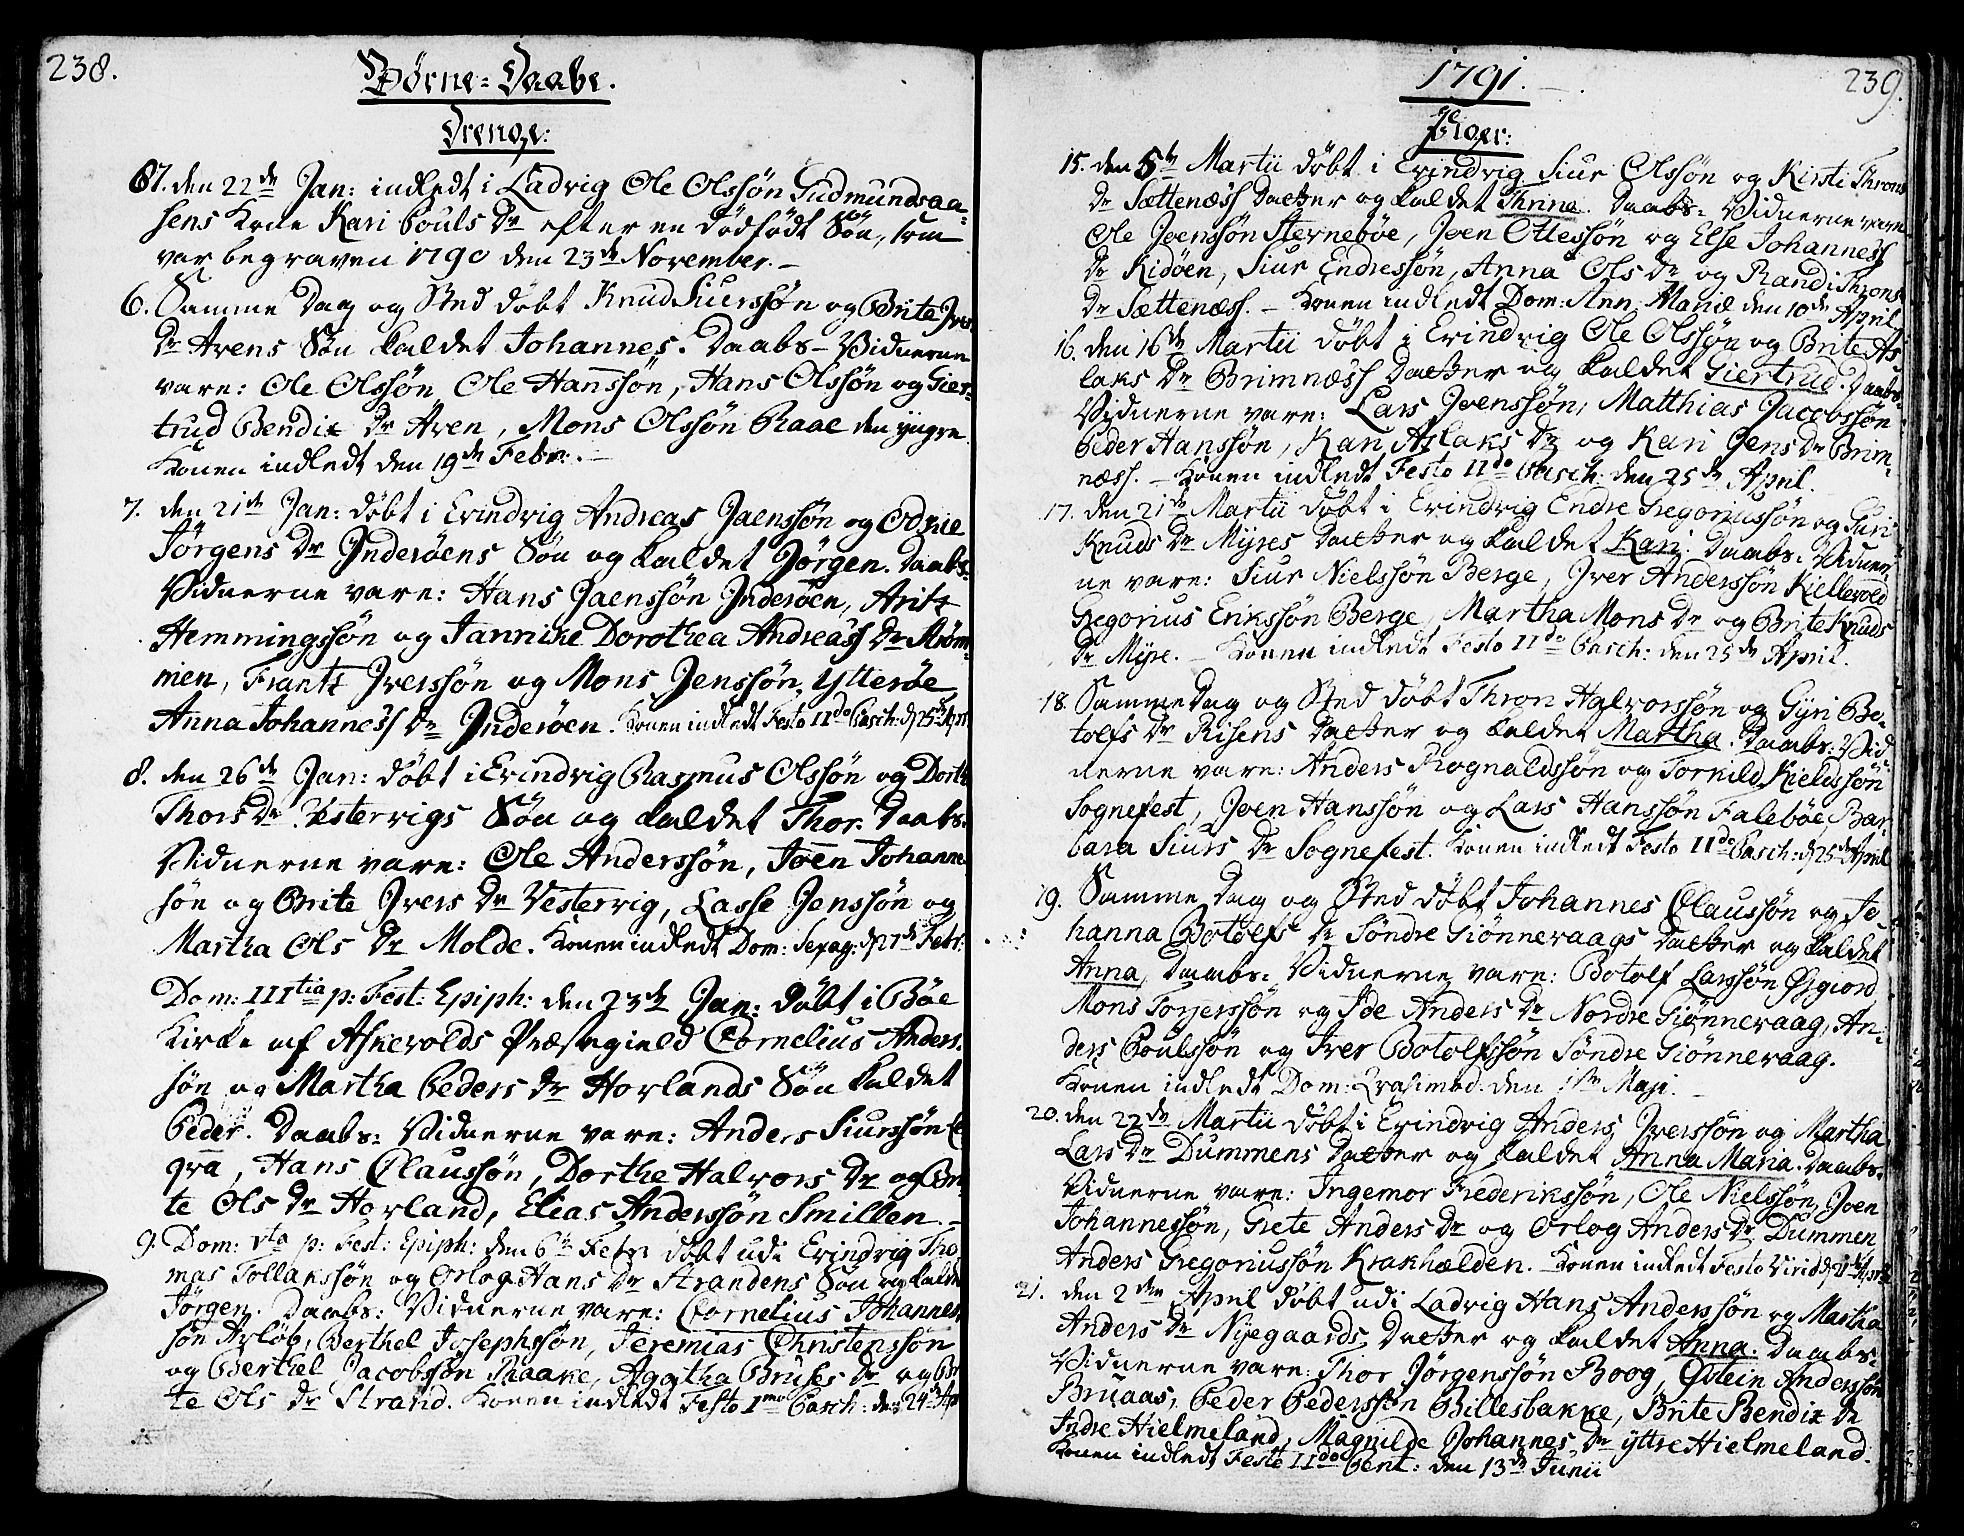 238.
Börne-Daabe.
Drenge:
den 22de Jan: indledt i Ladvig Ole Olssön Gudmundsaa-
sens Kone Kari Pouls Dr efter en dödfödt Sön, som
var begraven 1790 den 23de November. –
6. Samme Dag og Sted döbt Knud Siurssön og Brite Ivers
Dr Arens Sön kaldet Johannes. Daabs-Vidnerne
vare: Ole Olssön Ole Hanssön, Hans Olssön og Gier-
trud Bendix Dr Aren, Mons Olssön Raae den yngre.
Konen indledt den 19de Febr: –
7. den 21de Jan: döbt i Evindvig Andreas Jaenssön og Odnie
Jörgens Dr Inderöens Sön og kaldet Jörgen. Daabs-
Vidnerne vare: Hans Jaenssön Inderöen, Arilt
Hemmingssön og Jannike Dorothea Andreass Dr Ström-
men, Frantz Iverssön og Mons Jenssön, Ytteröe,
Anna Johanness Dr Inderöen. Konen indledt Festo IIdo Pasch: d 25de Apr:
8. den 26de Jan: döbt i Evindvig Rasmus Olssön og Dorte
Thors Dr Vestervigs Sön og kaldet Thor. Daabs-
Vidnerne vare: Ole Anderssön, Joen Johanne-
sön og Brite Ivers Dr Vestervig, Lasse Jenssön og
Martha Ols Dr Molde. Konen indledt Dom: Sexag: d 27de Febr:
Dom: IIItia p: Fest: Epiph: den 23de Jan: döbt i Böe
Kirke af Askevolds Præstegield Cornelius Anders-
sön og Martha Peders Dr Horlands Sön kaldet
Peder. Daabs-Vidnerne vare: Anders Siurssön
Hans Claussön, Dorthe Halvors Dr og Bri-
te Ols Dr Horland, Elias Anderssön Smillen. –
9. Dom: Vta p: Fest: Epiph: den 6te Febr döbt udi Evindvig Tho-
mas Tollakssön og Orlog Hans Dr Strandens Sön og kaldet
Jörgen. Daabs-Vidnerne vare: Cornelius Johannes-
sön Arlöb, Berthel Josephssön, Jeremias Christenssön
og Berthel Jacobssön Raake, Agatha Bruses Dr og Bri-
te Ols Dr Strand. Konen indledt Festo Imo Pasch: den 24de Apr
1791.
239.
Piger:
15. den 5te Martii döbt i Evindvig Siur Olssön og Kirsti Throns
Dr Sættenæss Datter og kaldet Thrine. Daabs-Vidnerne vare
Ole Joenssön Sterneböe, Joen Ottessön og Else Johanness
Dr Kidöen, Siur Endressön, Anna Ols Dr og Randi Throns
Dr Sættenæss. – Konen indledt Dom: Ann: Mariæ den 10de April
16. den 16de Martii döbt i Evindvig Ole Olssön og Brite As-
laks Dr Brimnæss Datter og kaldet Giertrud. Daabs-
Vidnerne vare: Lars Joenssön, Matthias Jacobssön
Peder Hanssön, Kari Aslaks Dr og Kari Jens Dr Brim-
næss. – Konen indledt Festo IIdo Pasch: den 25de April.
17. den 21de Martii döbt i Evindvig Endre Gregoriussön og Guri
Knuds Dr Myres Datter og kaldet Kari. Daabs-Vidner-
ne vare: Siur Nielssön Berge, Iver Anderssön Kiellevold
Gregorius Erikssön Berge, Martha Mons Dr og Brite Knuds
Dr Myre. – Konen indledt Festo IIdo Pasch: den 25de April.
18. Samme Dag og Sted döbt Thron Halvorssön og Gyri Bo-
tolfs Dr Risens Datter og kaldet Martha. Daabs-Vid-
nerne vare: Anders Rognaldssön og Torkild Kieldssön
Sognefest, Joen Hanssön og Lars Hanssön Faleböe, Bar-
bara Siurs Dr Sognefest. Konen indledt Festo IIdo Pasch: d 25de April
19. Samme Dag og Sted döbt Johannes Claussön og Jo-
hanna Botolfs Dr Söndre Giönneraags Datter og kaldet
Anna, Daabs-Vidnerne vare: Botolf Larssön
Mons Torjerssön og Ide Anders Dr Nordre Giönneraag, An-
ders Poulssön og Iver Botolfssön Söndre Giönneraag.
Konen indledt Dom: Qvasimod: den 1ste Maji. –
20. den 22de Martii döbt i Evindvig Anders Iverssön og Martha
Lars Dr Dummens Datter og kaldet Anna Maria. Daabs-
Vidnerne vare: Ingemor Frederikssön, Ole Nielssön, Joen
Johannessön, Grete Anders Dr og Orlog Anders Dr Dummen
Anders Gregoriussön Krakhælden. Konen indledt Festo Virid: d 21de April
21. den 2den April döbt udi Ladvig Hans Anderssön og Martha
Anders Dr Nyegaards Datter og kaldet Anna. Daabs-
Vidnerne vare: Thor Jörgenssön Boog, Östein Anderssön
Bruaas, Peder Pederssön Billesbakke, Brite Bendix Dr
Indre Hielmeland, Magnilde Johannes Dr yttre Hielmeland.
Konen indledt Festo IIdo Pent: den 13de Junii